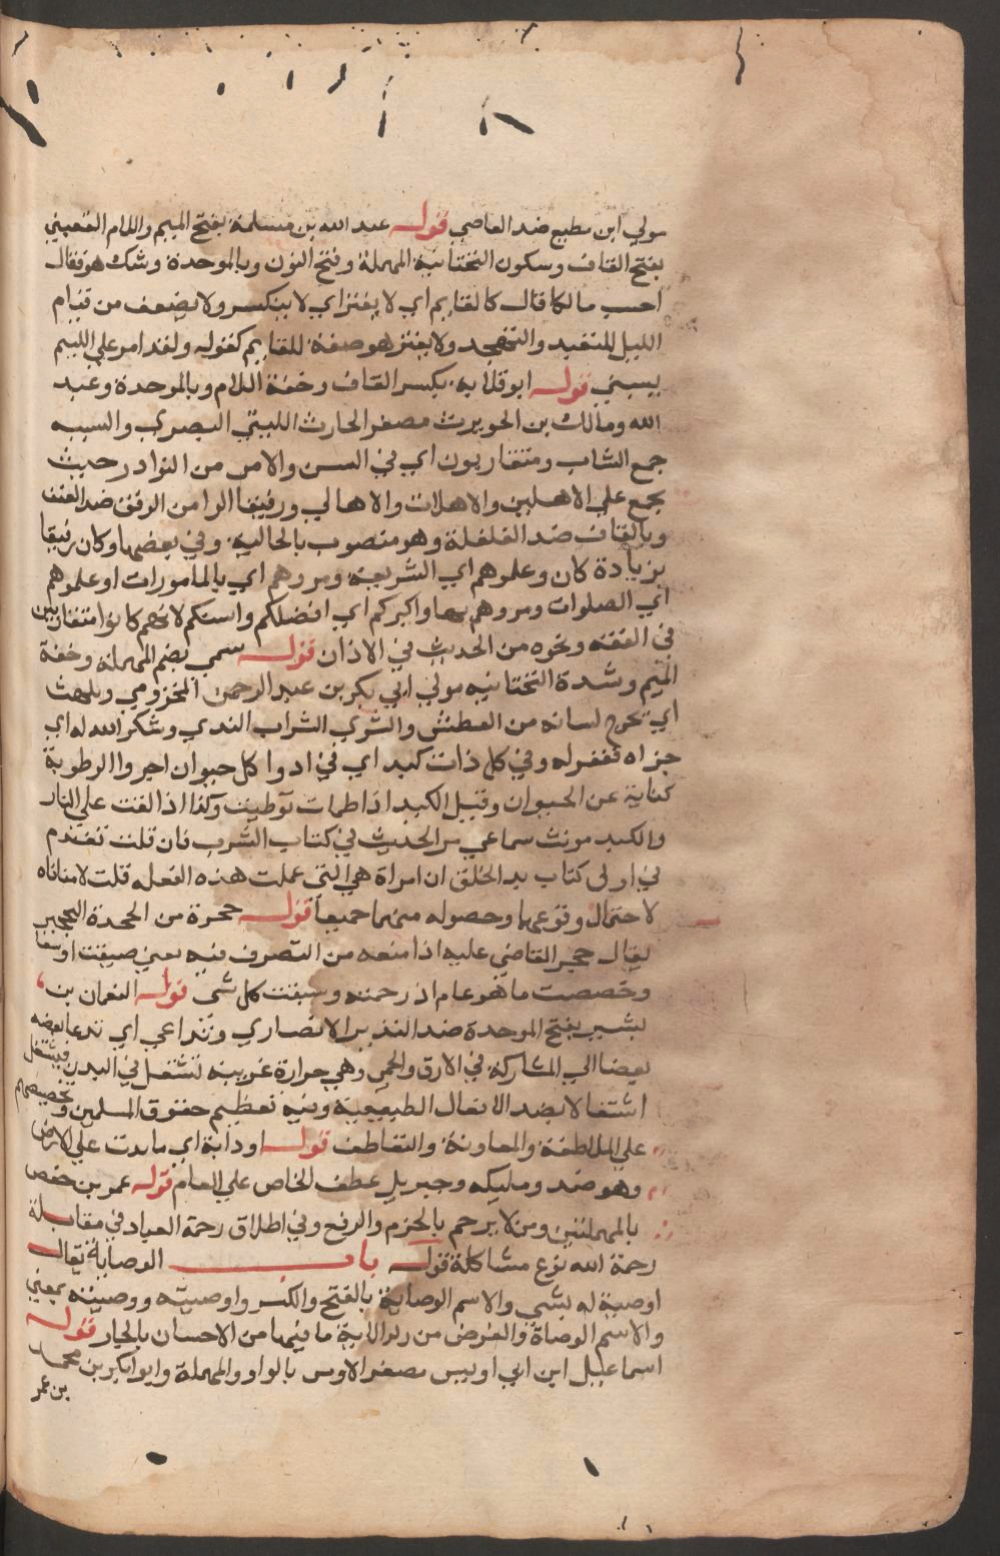 مولي ابن مطيع ضد العاصي قوله عبد الله بن مسلمة بفتح الميم واللام القعبني
بفتح القاف وسكون التختانية المهملة وفتح النون وبالموحدة وشك هو فقال
احسب مالكا قال كالقايم اي لا يفتر اي لا ينكسر ولا يضعف من قيام
الليل للتعبد والتهجد ولا يفتر هو صفة للقايم كقوله ولقد امر علي الليم
يسبني قوله ابو قلابة بكسر القاف وخفة اللام وبالموحدة وعبد
الله ومالك بن الحويرث مصغر الحارث الليثي البصري والشببه
جمع الشاب ومتقاربون اي في السن والامر من النوادر حيث
يجمع علي الاهلين والاهلات والاهالي ورفيقا الرا من الرفق ضد العنف
وبالقاف ضد الغلغلة وهو منصوب بالحالية وفي بعضها وكان رفيقا
بزيادة كان وعلموهم اي الشريعة ومروهم اي بالمامورات او علموهم
اي الصلوات ومروهم بها واكبركم اي افضلكم واسنكم لانهم كانوا متقاربين
في الفقه ونحوه من الحديث في الاذان قوله سمي بضم المهملة وخفة
الميم وشدة التختانيه مولي ابي بكر بن عبد الرحمن المخزومي ويلهث
اي يخرج لسانه من العطش والثري التراب الندي وشكر الله له اي
جزاه فغفر له وفي كل ذات كبد اي في اروا كل حيوان اجر والرطوبة
كناية عن الحيوان وقيل الكبد اذا ظمات ترطبت وكذا اذا القت علي النار
والكبد مونث سماعي مر الحديث في كتاب الشرب فان قلت تقدم
في اولى كتاب بد الخلق ان امراة هي التي عملت هذه الفعله قلت لا منافاه
لاحتمال وقوعها وحصوله منهما جميعا قوله حجرة من الحجدة التحجير
يقال حجر القاضي عليه اذا منعه من التصرف فيه يعني ضيقت واسعا
وخصصت ما هو عام اذ رحمته وسعت كل شي قوله النعمان بن
بشير بفتح الموحدة ضد النذير الانصاري وتداعي اي تدعا بعضه
بعضا الي المشاركة في الارق والحمى وهي حرارة غريبة تشتعل في البدن فيشتعل
اشتعالا يضر الافعال الطبيعية وفيه تعظيم حقوق المسلمين وتحضيضهم
علي الملاطفة والمعاونة والتعاطف قوله او دابة اي ما يدب علي الارض
وهو ضد ومليكه وجبريل عطف الخاص علي العام قوله عمر بن حفص
بالمهملتين ومن لا يرحم بالجزم والرفع وفي اطلاق رحمة العباد في مقابلة
رحمة الله نوع مشاكلة قوله باب الوصاياة يقال
اوصية له بشي والاسم الوصاية بالفتح والكسر واوصيته ووصيته بمعني
والاسم الوصاة والغرض من رد الاية ما فيها من الاحسان بالجار قوله
اسماعيل ابن ابي اويس مصغر الاوس بالواو والمهملة وابو بكر بن محمد
بن عمر